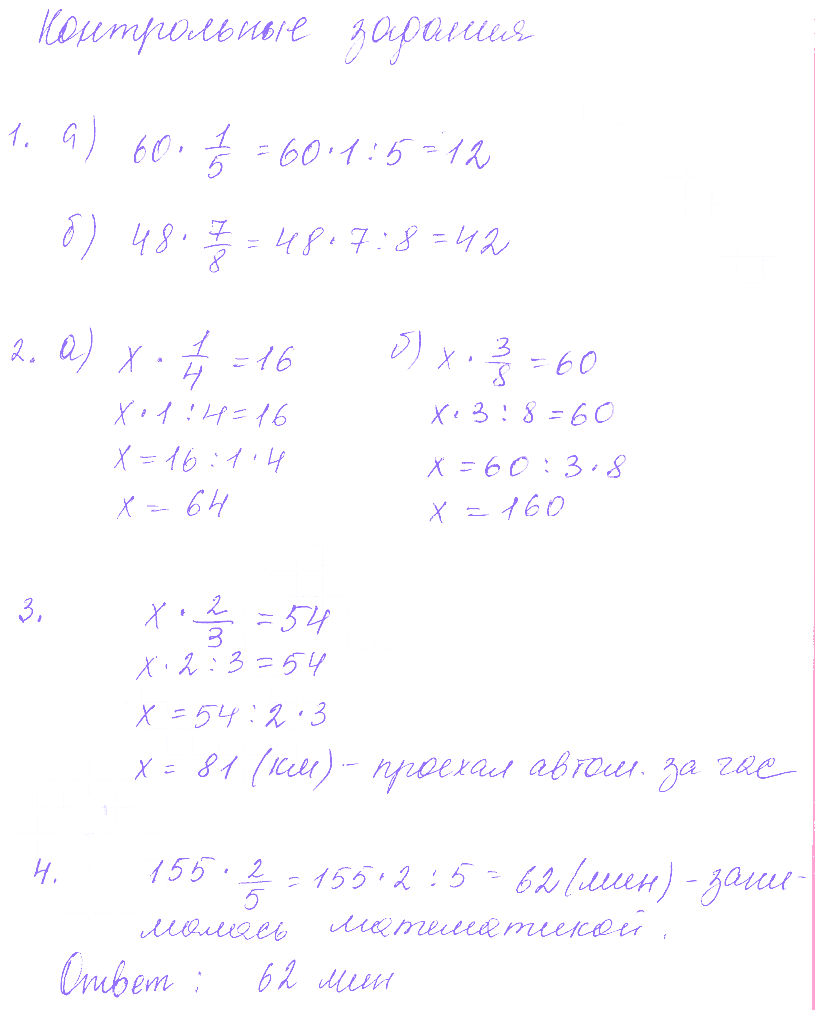 Контрольные задания
1. а) 60 · 1/5 = 60 · 1 : 5 = 12
б) 48 · 7/8 = 48 · 7 : 8 = 42
2. а) x · 1/4 = 16 б) x · 3/8 = 60
x · 1 : 4 = 16 x · 3 : 8 = 60
x = 16 : 1 · 4 x = 60 : 3 · 8
x = 64 x = 160
3. x · 2/3 = 54
x · 2 : 3 = 54
x = 54 : 2 · 3
x = 81 (км) - проехал автом. за час
4. 155 · 2/5 = 155 · 2 : 5 = 62 (мин) - зани-
малась математикой.
Ответ : 62 мин